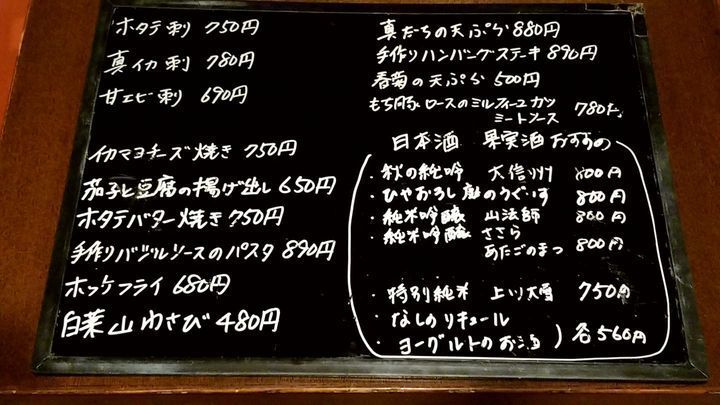 ホタテ刺 750円
真イカ刺 780円
甘エビ刺 690円
イカマヨチーズ焼き 750円
茄子と豆腐の揚げ出し 650円
ホタテバター焼き 750円
手作りバジルソースのパスタ 890円
ホッケフライ 680円
白菜山わさび 480円
真たちの天ぷら 880円
手作りハンバーグステーキ 890円
春菊の天ぷら 500円
もち豚ロースのミルフィーユカツ
ミートソース 780円
日本酒 果実酒 おすすめ
・秋の純吟 大信州 800円
・ひやおろし 庭のうぐいす 800円
・純米吟醸 山法師 800円
・純米吟醸 ささら
あたごのまつ 800円
・特別純米 上川大雪 750円
・なしのリキュール
・ヨーグルトのお酒 ) 各560円